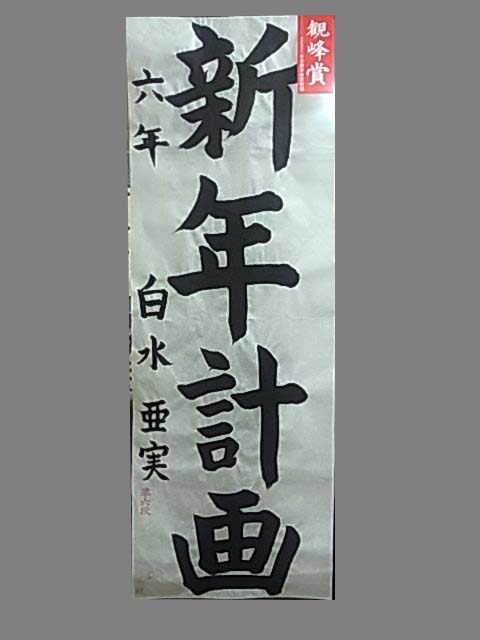 観峰賞
新年計画
六年 白水 亜実
準六段